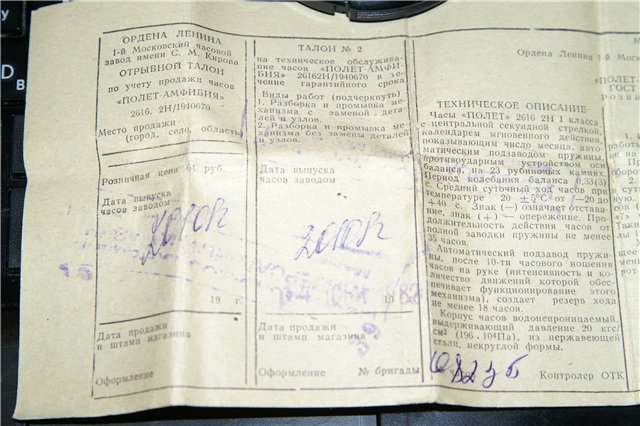 ОРДЕНА ЛЕНИНА
1-й Московский часовой
завод имени С. М. Кирова
ОТРЫВНОЙ ТАЛОН
по учету продажи часов
«ПОЛЕТ-АМФИБИЯ»
2616. 2Н/1940670
Место продажи
(город, село, область)
Розничная цена 61 руб.
Дата выпуска
часов заводом
19 г.
Дата продажи
и штамп магазина
Оформление
ТАЛОН № 2
на техническое обслужива-
ние часов «ПОЛЕТ-АМФИ-
БИЯ» 26162Н/1940670 в те-
чение гарантийного срока
Виды работ (подчеркнуть)
1. Разборка и промывка ме-
ханизма с заменой дета-
лей и узлов.
2. Разборка и промывка ме-
ханизма без замены деталей
и узлов.
Дата выпуска
часов заводом
Дата продажи
и штамп магазина
Оформление № бригады
Ордена Ленина 1-й
ТЕХНИЧЕСКОЕ ОПИСАНИЕ
Часы «ПОЛЕТ» 2616 2Н 1 класса
с центральной секундной стрелкой,
календарем мгновенного действия,
показывающим число месяца, авто-
матическим подзаводом пружины,
противоударным устройством оси
баланса, на 23 рубиновых камнях.
Период колебания баланса 0,33(3)
с. Средний суточный ход часов при
температуре 20 ±5°С от —20 до
+40 с. Знак (—) означает отстава-
ние, знак (+) — опережение. Про-
должительность действия часов от
полной заводки пружины не менее
35 часов.
Автоматический подзавод пружи-
ны, после 10-ти часового ношения
часов на руке (интенсивность и ко-
личество движений которой обес-
печивает функционирование этого
механизма), создает резерв хода
не менее 18 часов.
Корпус часов водонепроницаемый,
выдерживающий давление 20 кгс/
см² (196 . 104Па), из нержавеющей
стали, некруглой формы.
Контролер ОТК